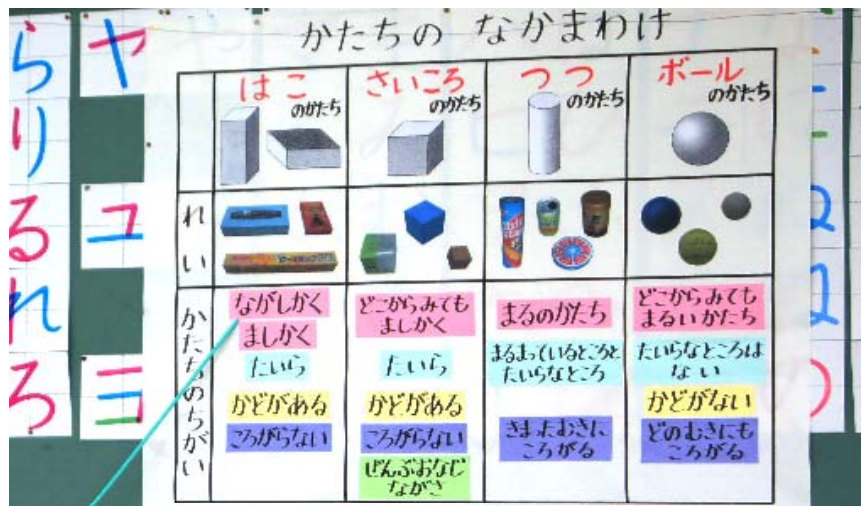 かたちの なかまわけ
はこ
のかたち
さいころ
のかたち
つつ
のかたち
ボール
のかたち
れい
かたちのちがい
ながしかく
ましかく
たいら
かどがある
ころがらない
どこからみても
ましかく
たいら
かどがある
ころがらない
ぜんぶおなじ
ながさ
まるのかたち
まるまっているところと
たいらなところ
きまったむきに
ころがる
どこからみても
まるいかたち
たいらなところは
ない
かどがない
どのむきにも
ころがる
らりるれろ
ヤユヨ